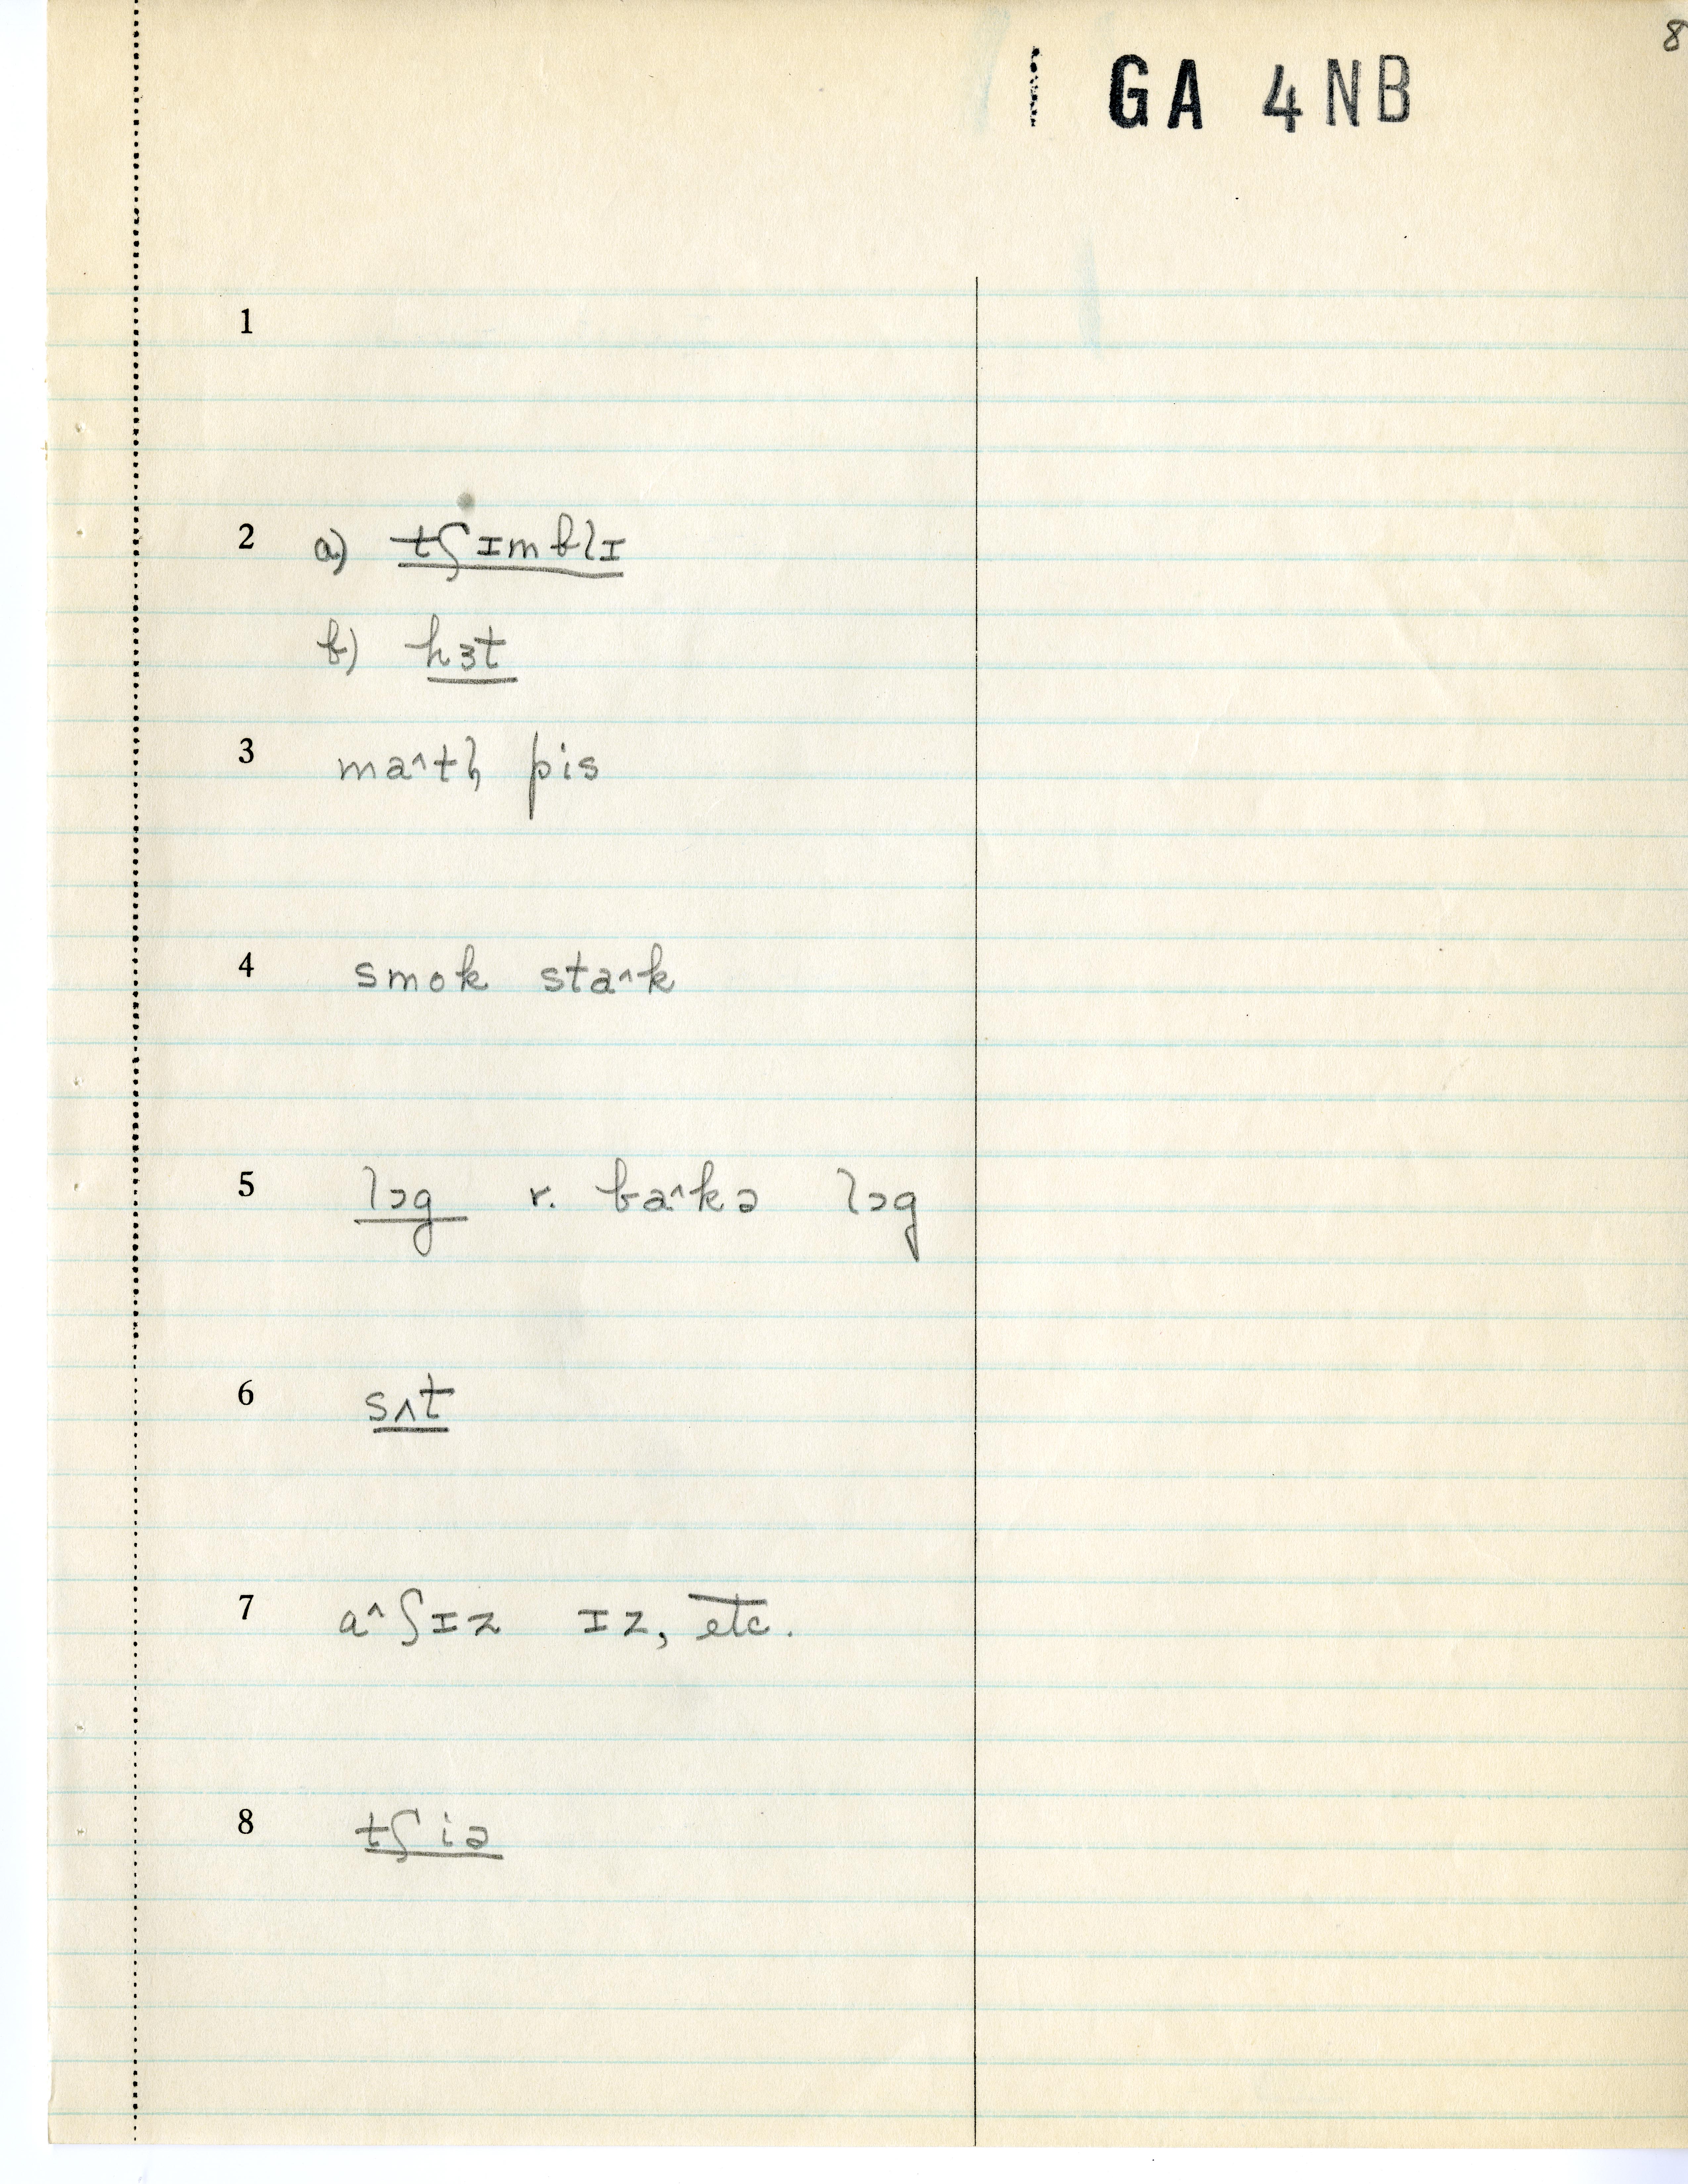 8
GA 4NB
1
2 a) tʃɪmblɪ
b) hɜt
3 ma^tl̩ pis
4 smok sta^k
5 lɔg r. ba^kə lɔg
6 sʌt
7 a^ʃɪz ɪz, etc.
8 tʃiə